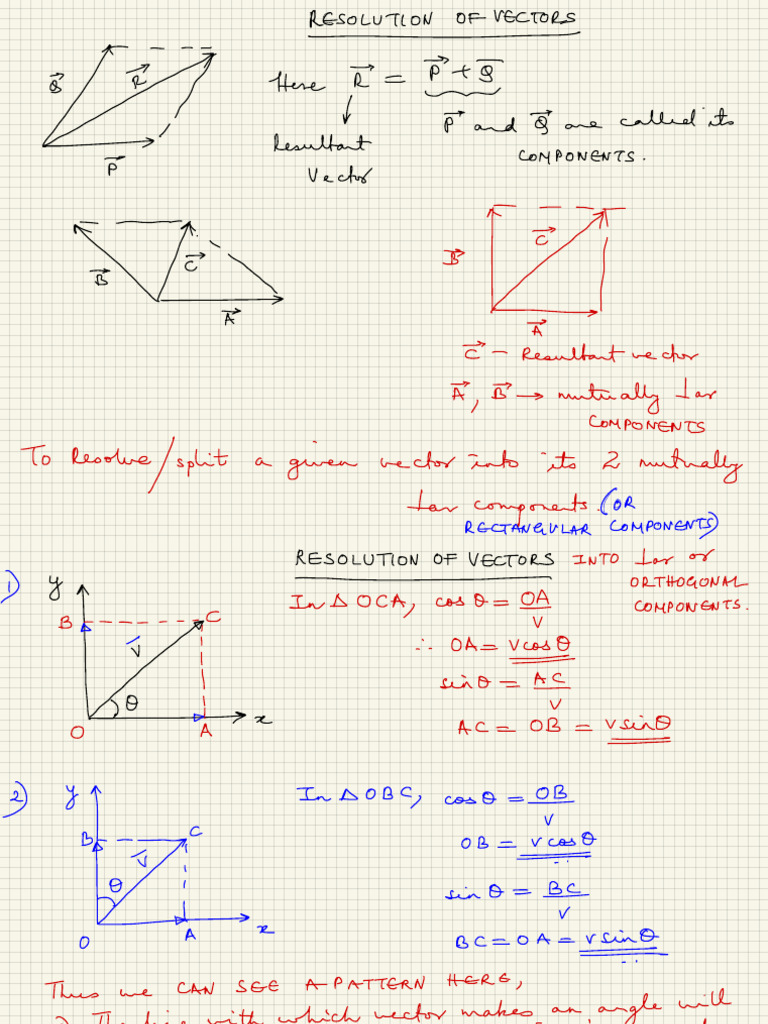 RESOLUTION OF VECTORS
Q R P
Here R = P + Q
Resultant Vector
P and Q are called its
COMPONENTS.
B C A
B C A
C - Resultant vector
A, B → mutually ⊥ar
COMPONENTS
To Resolve/split a given vector into its 2 mutually
⊥ar components. (OR
RECTANGULAR COMPONENTS)
RESOLUTION OF VECTORS INTO ⊥ar or
ORTHOGONAL
COMPONENTS.
1)
y
B C
V
θ
O A x
In Δ OCA, cosθ = OA/V
∴ OA = vcosθ
sinθ = AC/V
AC = OB = vsinθ
2)
y
B C
V
θ
O A x
In Δ OBC, cosθ = OB/V
OB = vcosθ
sinθ = BC/V
BC = OA = vsinθ
Thus we CAN SEE A PATTERN HERE,
with which vector makes an angle will